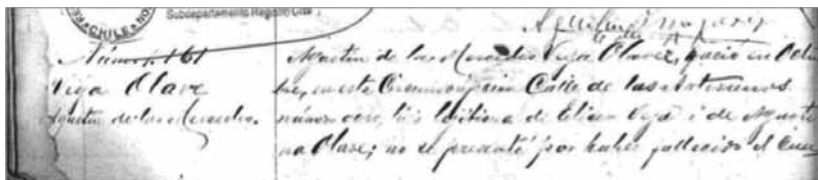 CHILE
Subdepartamento Registro Civil
Número 161
Vega Olave
Agustin de las Mercedes.
Agustin de las Mercedes Vega Olave, nació en Octu
bre, en esta Circunscripcion Calle de las Artesanos
número cero, hijo lejitimo de Eliseo Vega i de Agusti
na Olave; no se presentó por haber fallecido el